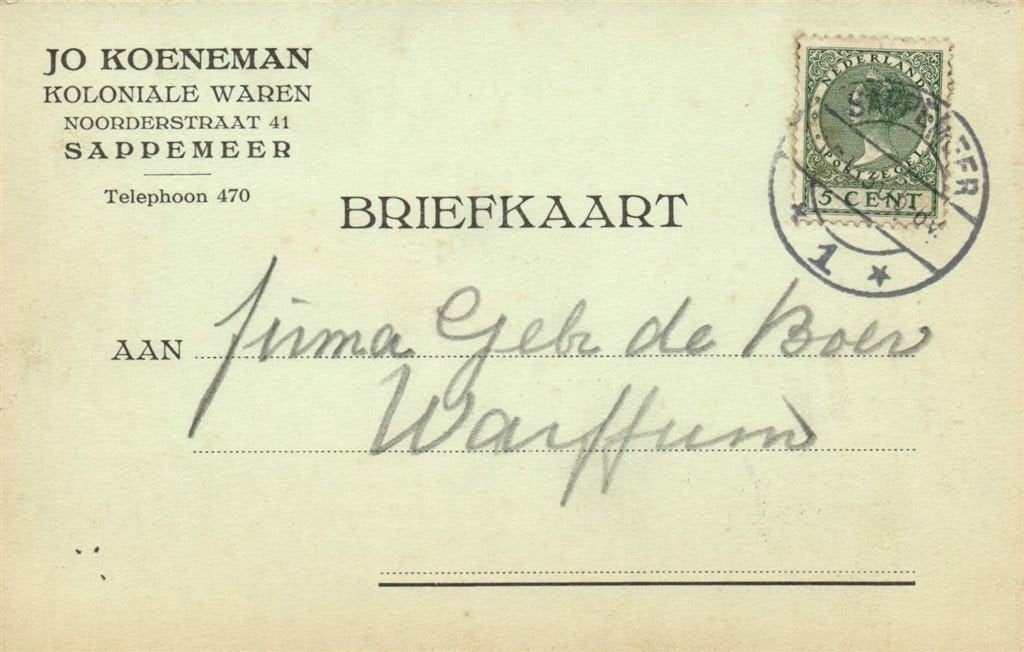 JO KOENEMAN
KOLONIALE WAREN
NOORDERSTRAAT 41
SAPPEMEER
Telephoon 470
NEDERLAND
POSTZEGEL
5 CENT
SAPPEMEER
1
BRIEFKAART
AAN firma Gebr de Boer
Warffum